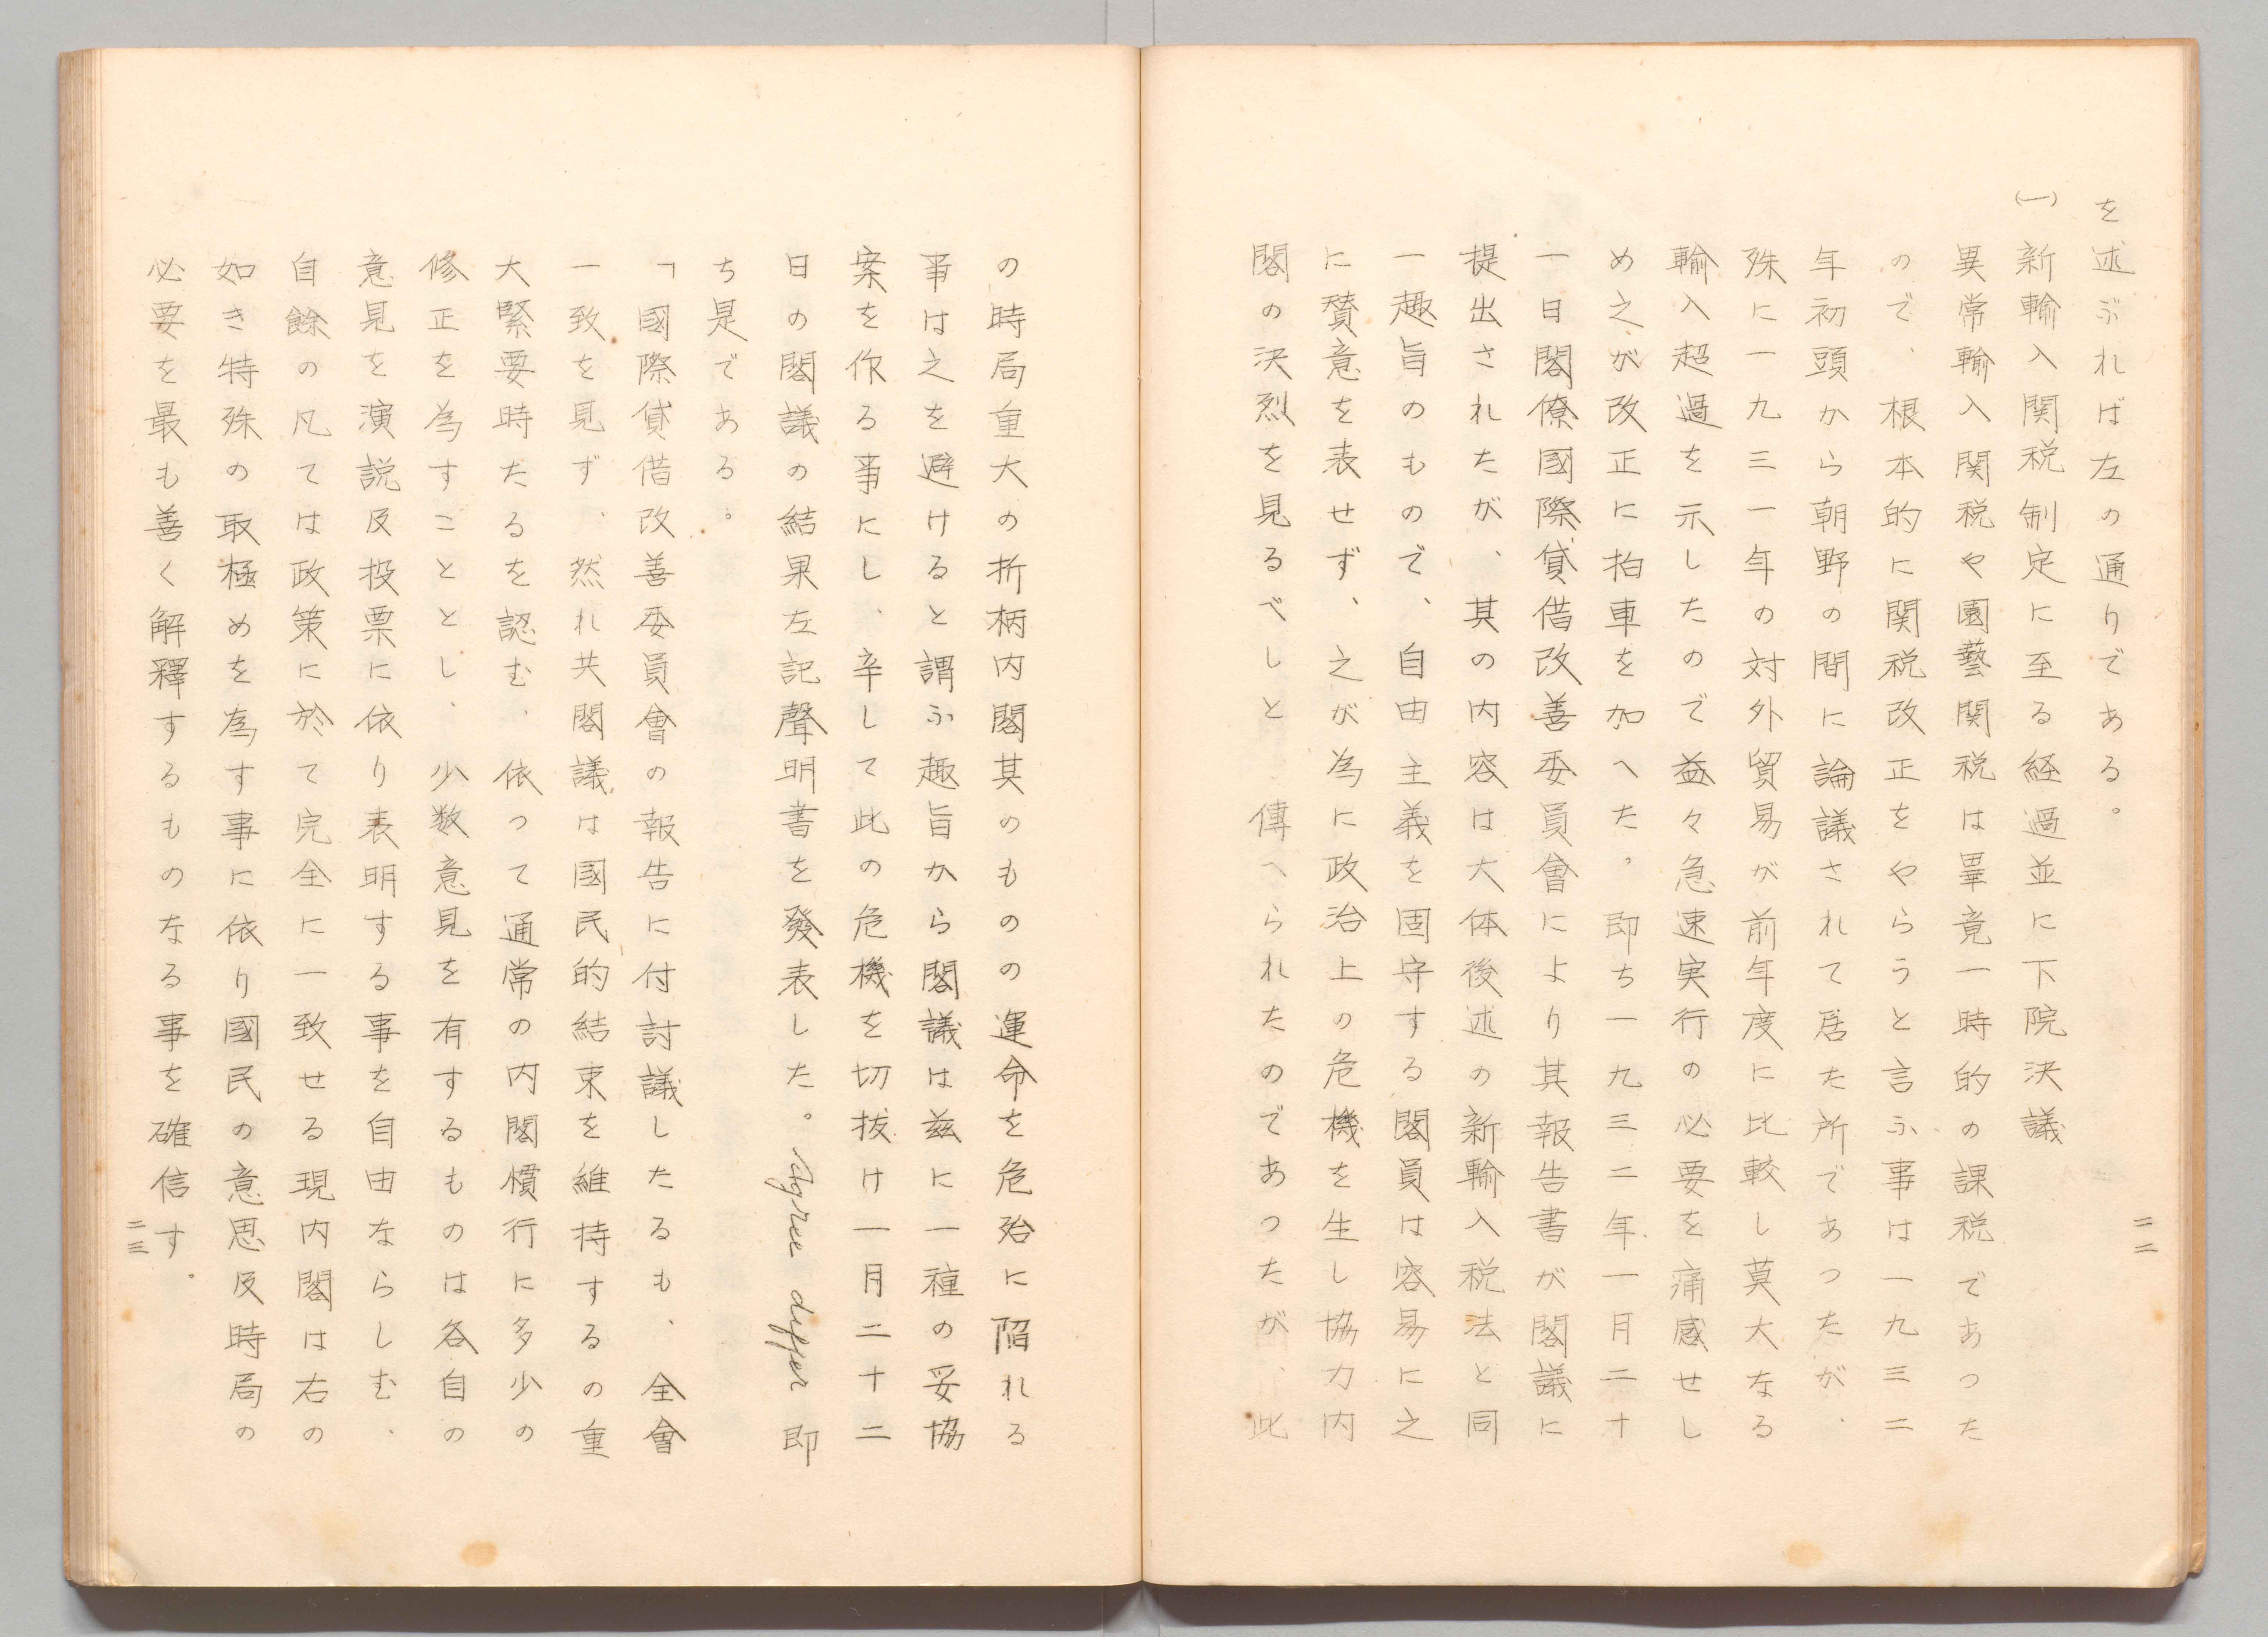 を述ぶれば左の通りである。
(一)新輸入関税制定に至る経過並に下院決議
異常輸入関税や園藝関税は畢竟一時的の課税であつた
ので、根本的に関税改正をやらうと言ふ事は一九三二
年初頭から朝野の間に論議されて居た所であつたが、
殊に一九三一年の対外貿易が前年度に比較し莫大なる
輸入超過を示したので益々急速実行の必要を痛感せし
め之が改正に拍車を加へた。即ち一九三二年一月二十
一日閣僚國際貸借改善委員會により其報告書が閣議に
提出されたが、其の内容は大体後述の新輸入税法と同
一趣旨のもので、自由主義を固守する閣員は容易に之
に賛意を表せず、之が為に政治上の危機を生し協力内
閣の決烈を見るべしと傳へられたのであつたが、此
二二
の時局重大の折柄内閣其のものの運命を危殆に陥れる
事は之を避けると謂ふ趣旨から閣議は茲に一種の妥協
案を作る事にし、辛して此の危機を切抜け一月二十二
日の閣議の結果左記聲明書を發表した。Agree differ 即
ち是である。
「國際貸借改善委員會の報告に付討議したるも、全會
一致を見ず、然れ共閣議は國民的結束を維持するの重
大緊要時たるを認む、依つて通常の内閣慣行に多少の
修正を為すこととし、少数意見を有するものは各自の
意見を演説及投票に依り表明する事を自由ならしむ、
自餘の凡ては政策に於て完全に一致せる現内閣は右の
如き特殊の取極めを為す事に依り國民の意思及時局の
必要を最も善く解釋するものなる事を確信す。
二三